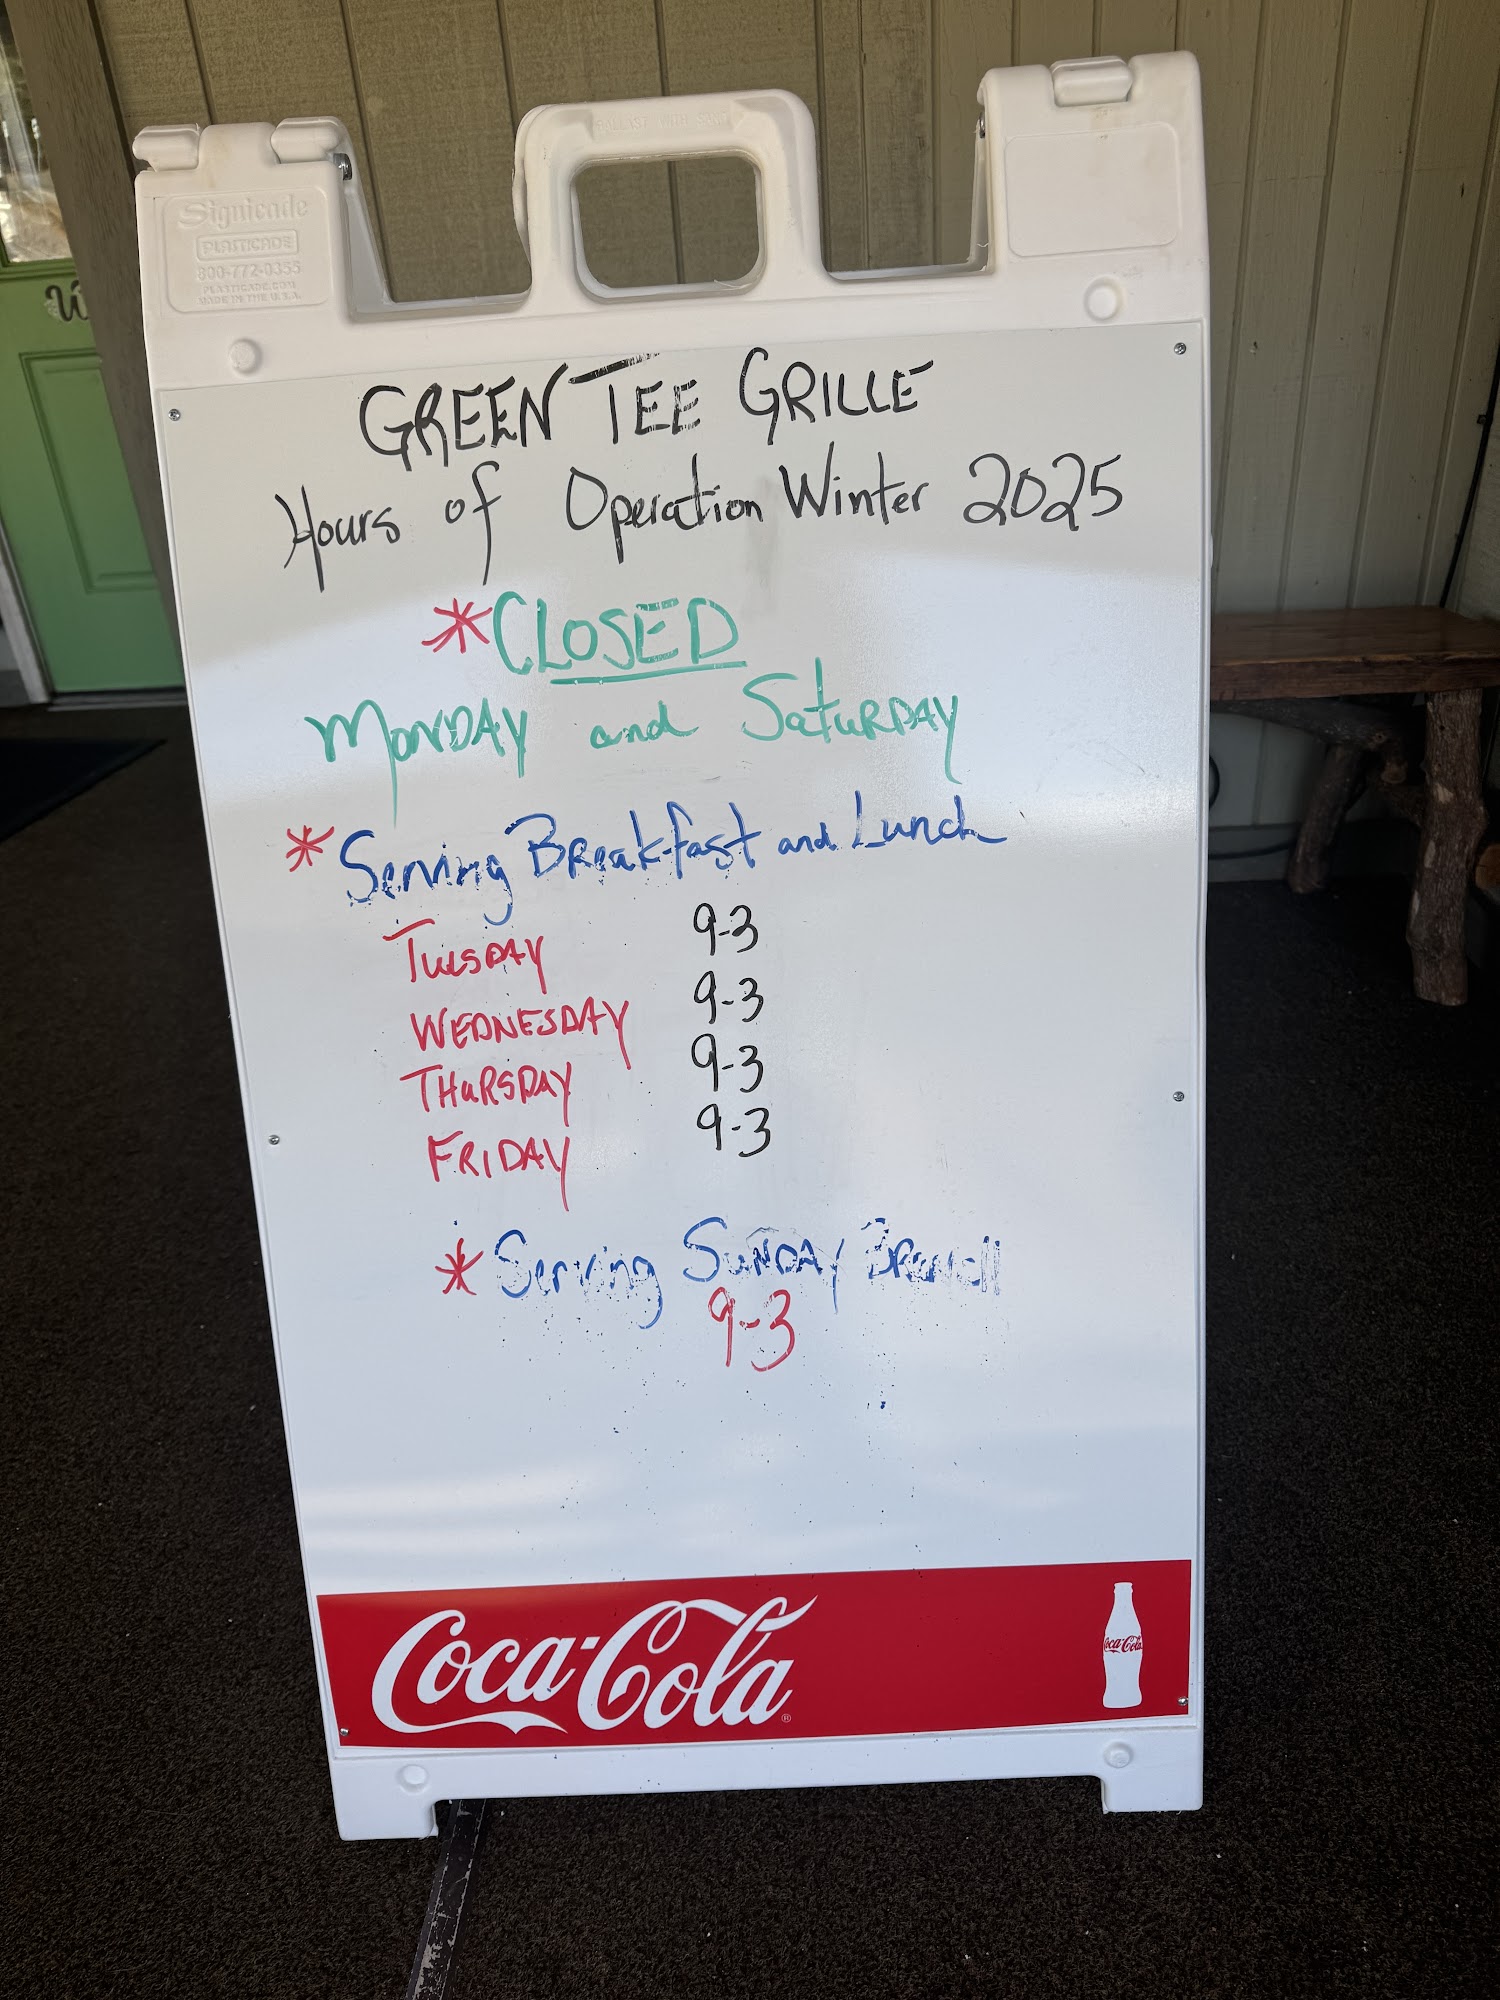 BALLAST WITH SAND
Signicade
PLASTICADE
800-772-0355
PLASTICADE.COM
MADE IN THE U.S.A.
GREEN TEE GRILLE
Hours of Operation Winter 2025
*CLOSED
MONDAY and SATURDAY
* Serving Breakfast and Lunch
TUESDAY 9-3
WEDNESDAY 9-3
THURSDAY 9-3
FRIDAY 9-3
* Serving SUNDAY Brunch
9-3
Coca-Cola ®
Coca-Cola